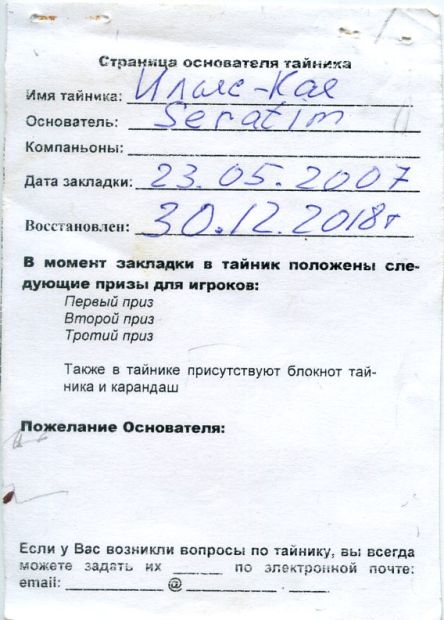 Страница основателя тайника
Имя тайника: Иляс-Кая
Основатель: Seratim
Компаньоны:
Дата закладки: 23.05.2007
Восстановлен: 30.12.2018г
В момент закладки в тайник положены сле-
дующие призы для игроков:
Первый приз
Второй приз
Тротий приз
Также в тайнике присутствуют блокнот тай-
ника и карандаш
Пожелание Основателя:
Если у Вас возникли вопросы по тайнику, вы всегда
можете задать их ______ по электронной почте:
email: ____________ @ ____________ . ____